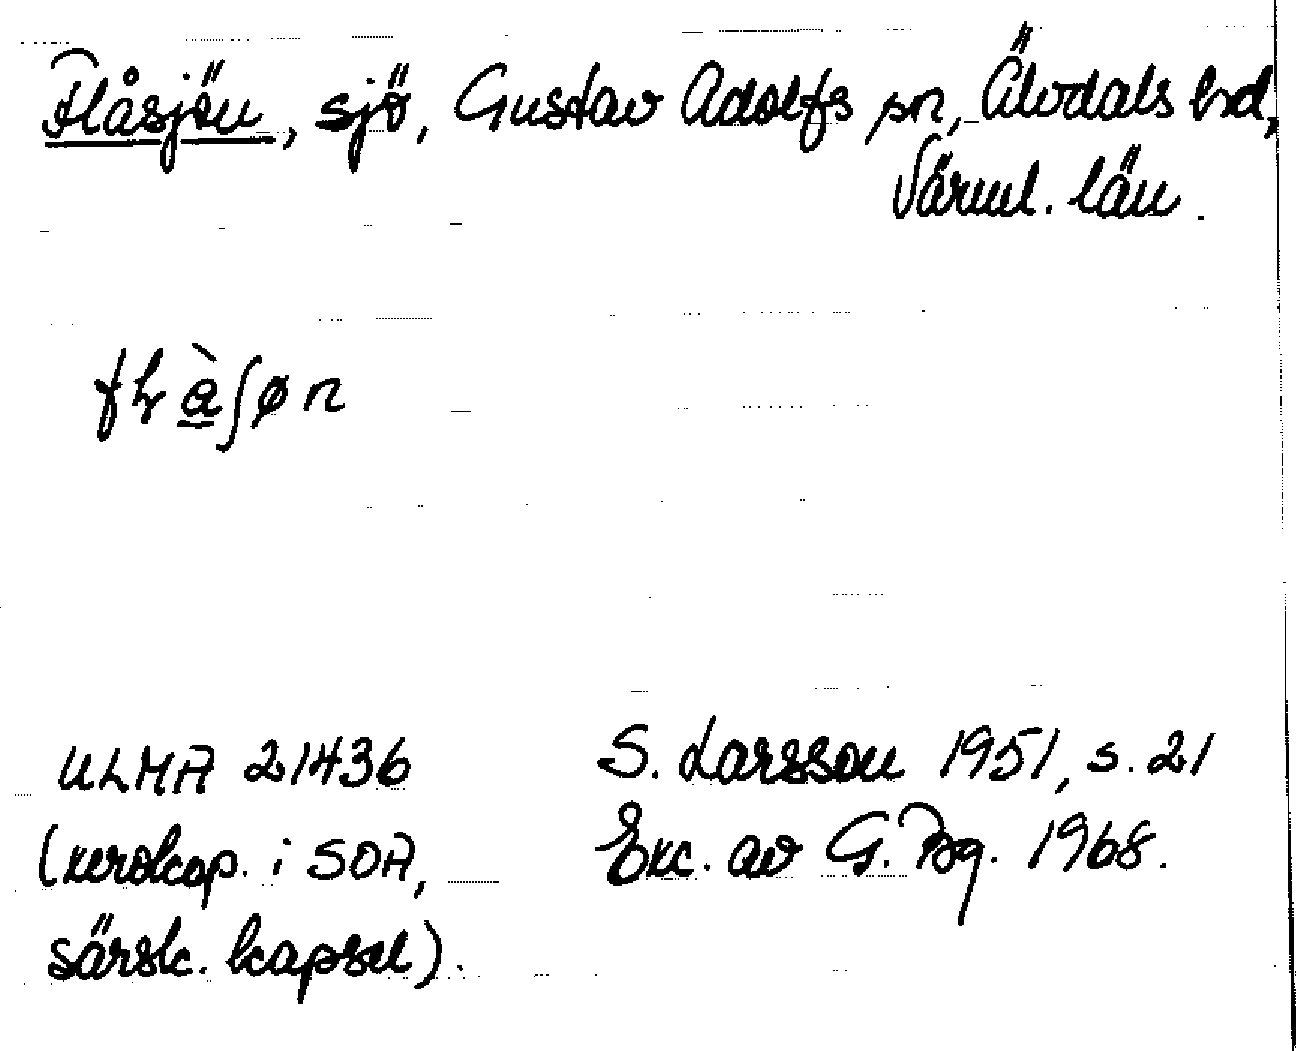 Flåsjön, sjö, Gustav Adolfs sn, Älvdals hd,
Värml. län.
ULMA 21436
(xeroxkop. i SOA,
särsk. kapsel).
S. Larsson 1951, s. 21
Exc. av G. Bg. 1968.